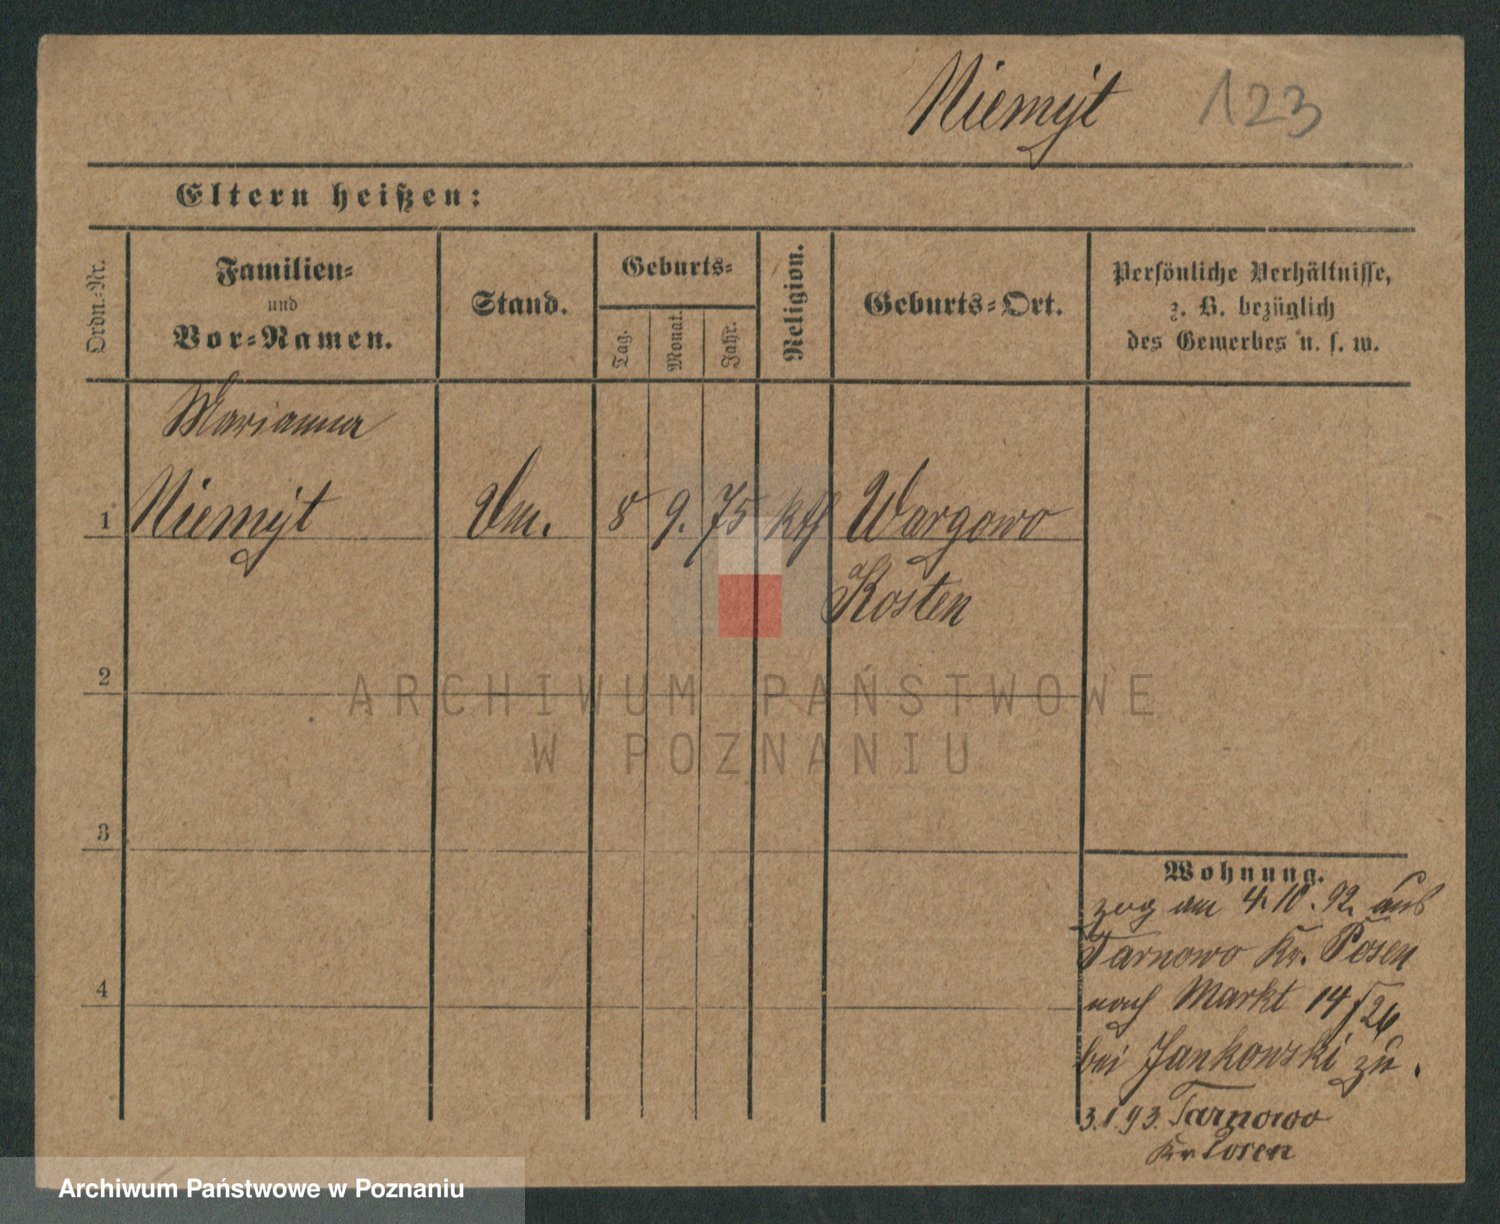 Niemyt 123
Eltern heißen:
Ordn.-Nr.
Familien-
und
Vor-Namen.
Stand.
Geburts-
Tag.
Monat.
Jahr.
Religion.
Geburts-Ort.
Persönliche Verhältnisse,
z. B. bezüglich
des Gewerbes u. s. w.
Marianna
1 Niemyt Dm. 8 9. 75 kth Wargowo
Kosten
2
3
4
Wohnung.
zog am 4.10.92. aus
Tarnowo Kr. Posen
nach Markt 14/26
bei Jankowski zu.
3.1.93. Tarnowo
Kr Posen
ARCHIWUM PAŃSTWOWE
W POZNANIU
Archiwum Państwowe w Poznaniu